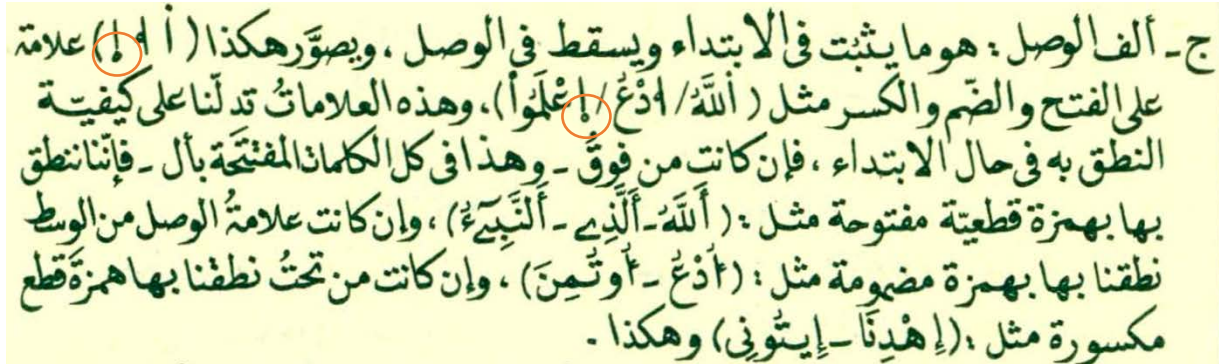 ج - ألف الوصل : هو ما يثبت في الابتداء ويسقط في الوصل ، ويصوَّر هكذا ( أ ا إ ) علامة
على الفتح والضّم والكسر مثل ( اَ۬للَّهُ / ا۟دْعُ / اِ۪عْلَمُواْ ) ، وهذه العلاماتُ تدلّنا على كيفيّة
النطق به في حال الابتداء ، فإن كانت من فوقُ - وهذا في كل الكلمات المفتتَحة بأل - فإنّنا ننطق
بها بهمزة قطعيّة مفتوحة مثل : ( أَللَّهُ - أَلَّذِے - أَلنَّبِيٓءُ ) ، وإن كانت علامةُ الوصل من الوسط
نطقنا بها بهمزة مضمومة مثل : ( أُدْعُ - أُوتُمِنَ ) ، وإن كانت من تحتُ نطقنا بها همزةَ قطع
مكسورة مثل : ( إِهْدِنَا - إِيتُونِى ) وهكذا .